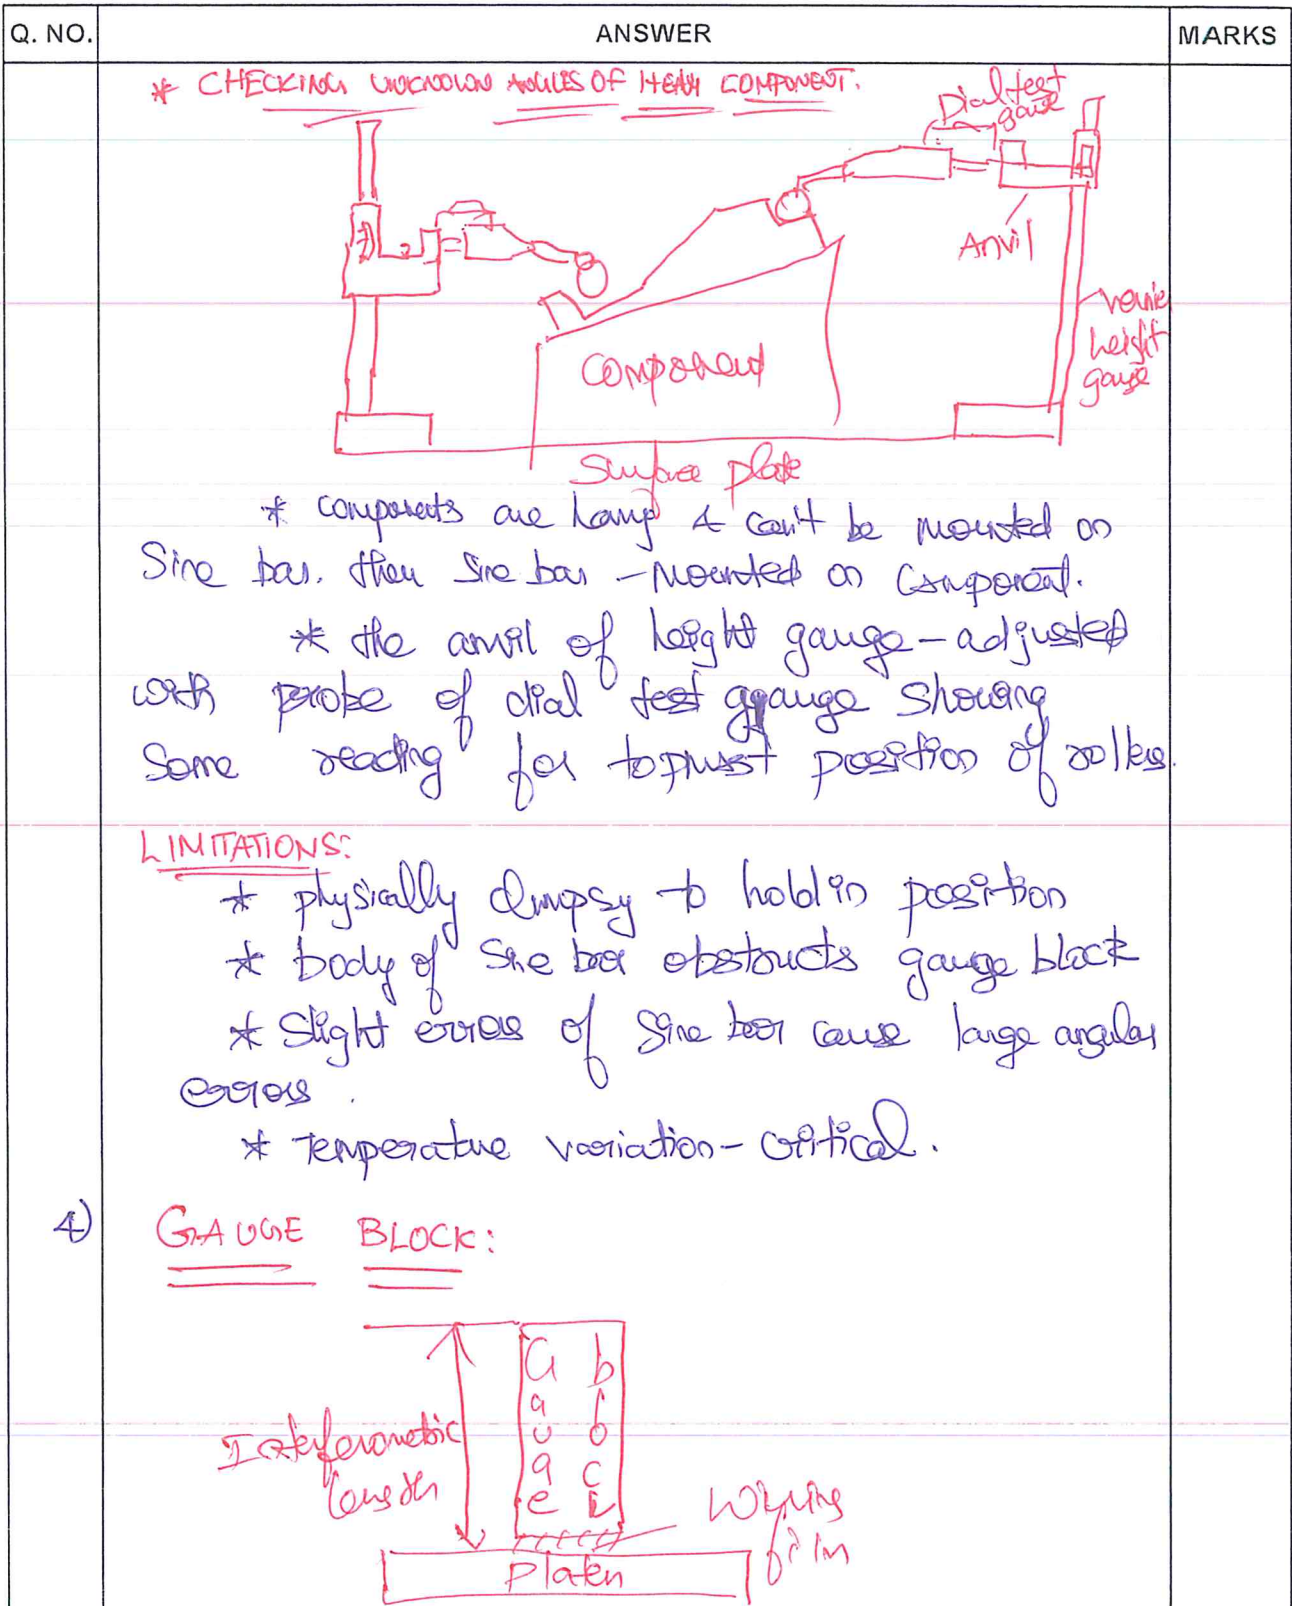 Q. NO. ANSWER MARKS
* CHECKING UNKNOWN ANGLES OF HEAVY COMPONENT.
Dial test
gauge
Anvil
vernie
height
gauge
Component
Surface plate
* components are heavy & can't be mounted on
Sine bar. then sine bar - mounted on component.
* the anvil of height gauge - adjusted
with probe of dial test gauge showing
Same reading for topmost position of rollers.
LIMITATIONS:
* physically clumpsy to hold in position
* body of sine bar obstructs gauge block
* Slight errors of sine bar cause large angular
errors.
* Temperature variation - critical.
4) GAUGE BLOCK:
Gauge block
Interferometric
length
Wringing
film
Platen